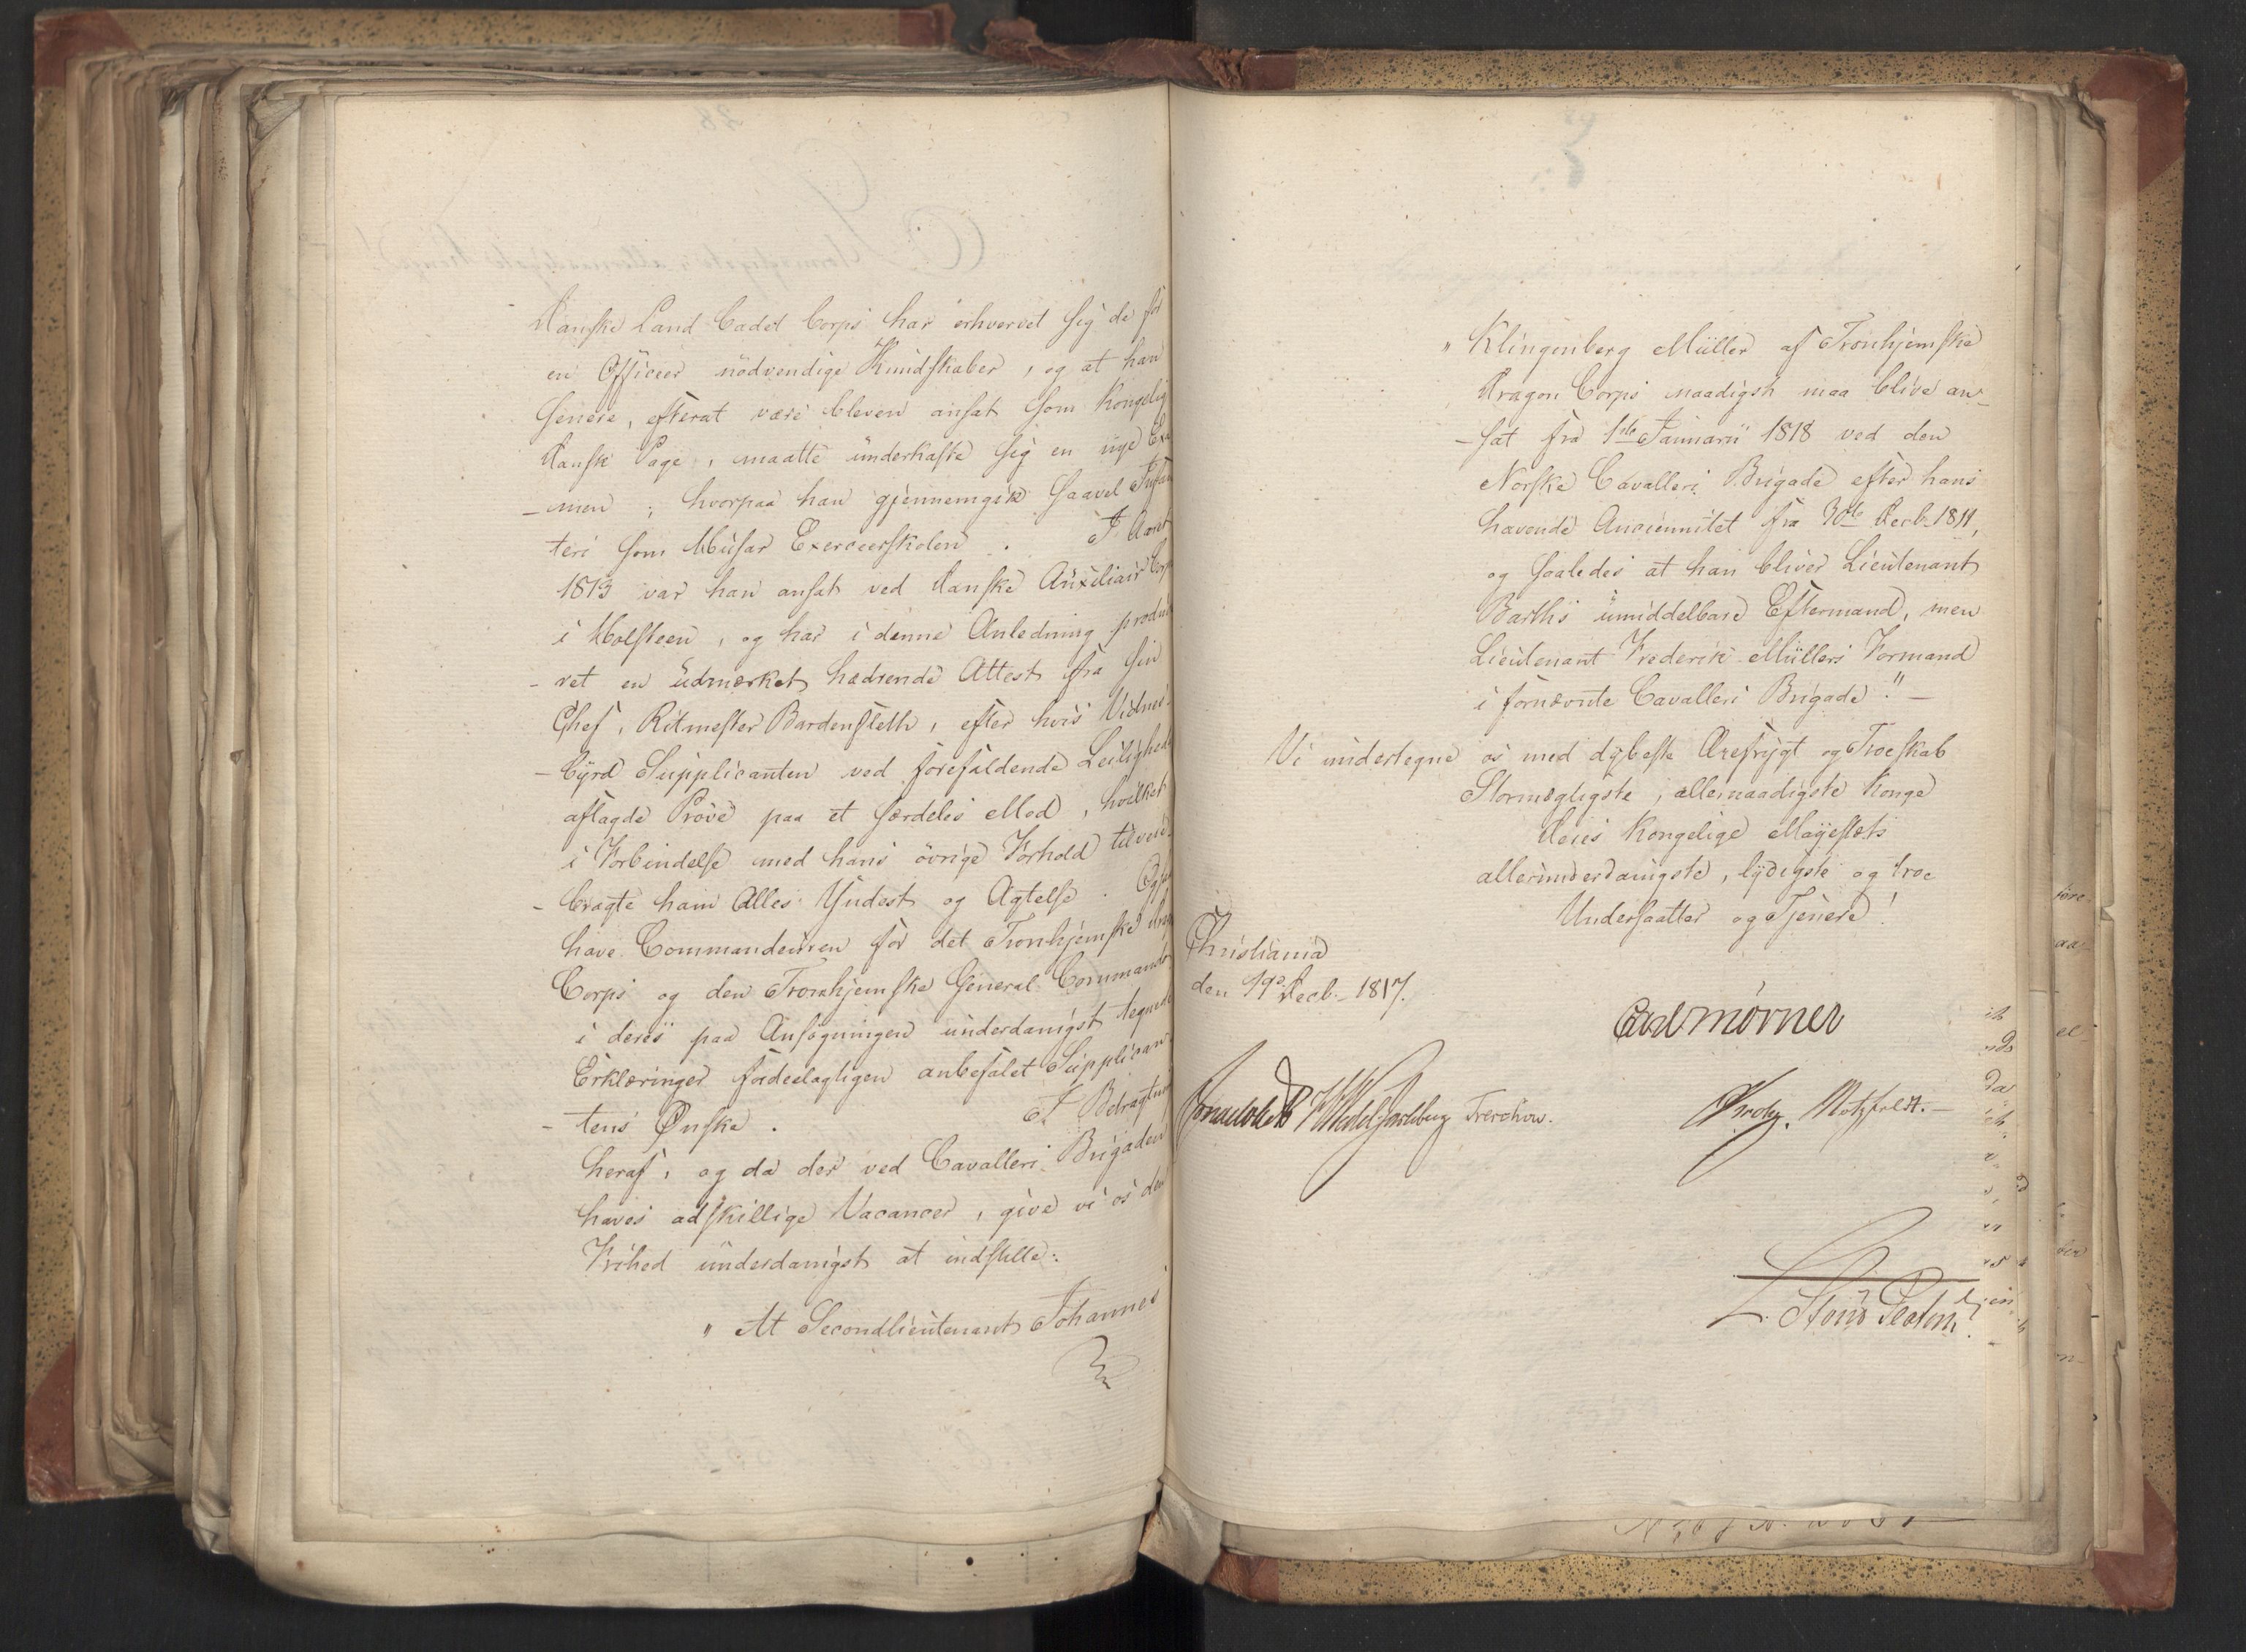 Danske Land Cadet Corps har erhvervet sig de for
en Officeer nödvendige Kundskaber, og at han
senere, efterat være bleven ansat som Kongelig
Dansk Page, maatte underkaste sig en nye Exa
-men; hvorpaa han gjennemgik saavel Infan
teri som Husar Exerceerskolen. I Aaret
1813 var han ansat ved danske Auxiliair Corps
i Holsteen, og har i denne Anledning produce
-ret en udmærket hædrende Attest fra sin
Chef, Ritmester Bardenfleth, efter hvis Vidnes-
-byrd Supplicanten ved forefaldende Leilighed
aflagde Pröve paa et særdeles Mod, hvilket
i Forbindelse med hans övrige Forhold tilveie-
-bragte ham Alles Yndest og Agtelse. Ogsaa
have Commandeuren for det Tronhjemske
Corps og den Tronhjemske General Commando
i deres paa Ansögningen underdanigst tegnede
Erklæringer fordeelagtigen anbefalet Supplican-
-tens Ønske. I Betragtning
heraf, og da der ved Cavalleri-Brigaden
haves adskillige Vacancer, give vi os den
Frihed underdanigst at indstille:
"At Secondlieutenant Johannes
"Klingenberg Müller af Tronhjemske
Dragon Corps naadigst maa blive an-
-sat fra 1ste Januarii 1818 ved den
Norske Cavalleri Brigade efter hans
havende Anciennitet fra 30te Decb. 1811,
og saaledes at han bliver Lieutenant
Barths umiddelbare Eftermand, men
Lieutenant Frederik Müllers Formand
i fornævnte Cavalleri Brigade." -
Vi undertegne os med dybeste Ærefrygt og Troeskab
Stormægtigste, allernaadigste Konge
Deres Kongelige Mayestæts
allerunderdanigste, lydigste og troe
Undersaatter og Tjenere!
Christiania
den 19de Decb. 1817.
Carl Mörner
Sommerhielm Wedel Jarlsberg Treschow.
Krog. Motzfeldt. -